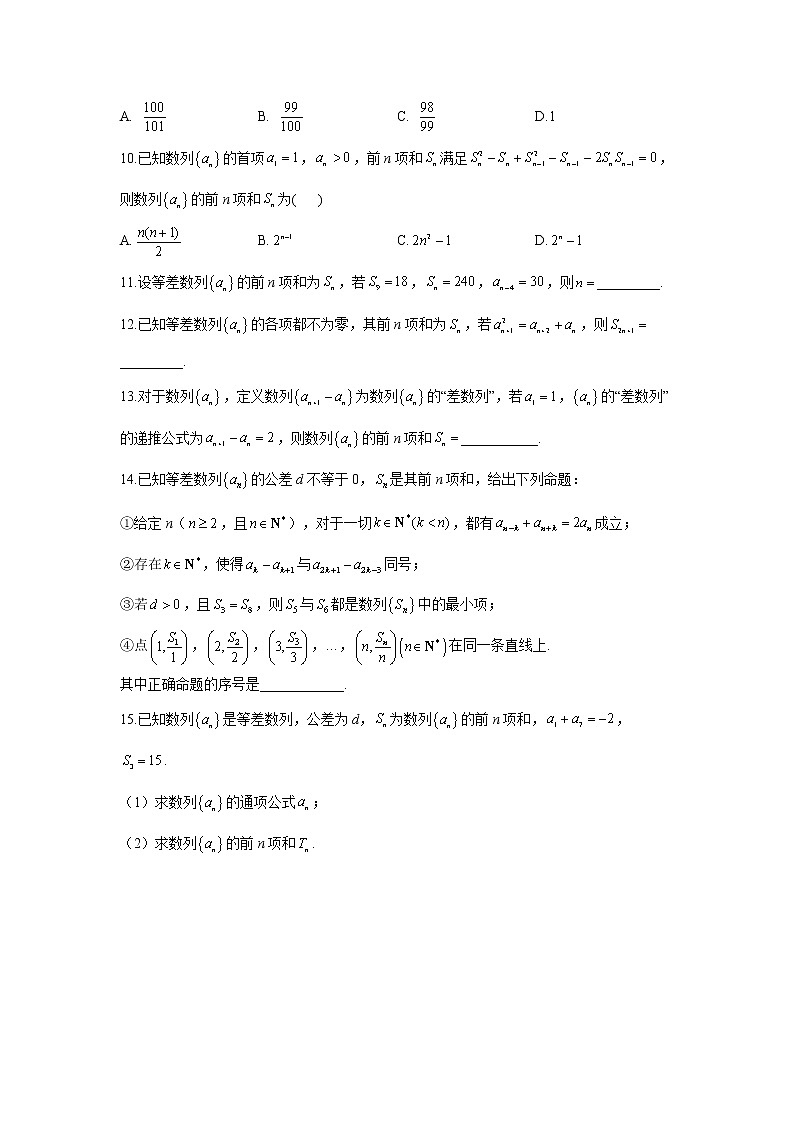 A. 100/101 B. 99/100 C. 98/99 D.1
10.已知数列{aₙ}的首项a₁ = 1，aₙ > 0，前n项和Sₙ满足Sₙ² − Sₙ + Sₙ₋₁² − Sₙ₋₁ − 2SₙSₙ₋₁ = 0，
则数列{aₙ}的前n项和Sₙ为( )
A. n(n+1)/2 B. 2ⁿ⁻¹ C. 2n² − 1 D. 2ⁿ − 1
11.设等差数列{aₙ}的前n项和为Sₙ，若S₉ = 18，Sₙ = 240，aₙ₋₄ = 30，则n = _________.
12.已知等差数列{aₙ}的各项都不为零，其前n项和为Sₙ，若aₙ₊₁² = aₙ₊₂ + aₙ，则S₂ₙ₊₁ =
_________.
13.对于数列{aₙ}，定义数列{aₙ₊₁ − aₙ}为数列{aₙ}的“差数列”，若a₁ = 1，{aₙ}的“差数列”
的递推公式为aₙ₊₁ − aₙ = 2，则数列{aₙ}的前n项和Sₙ = ___________.
14.已知等差数列{aₙ}的公差d不等于0，Sₙ是其前n项和，给出下列命题：
①给定n（n ≥ 2，且n∈N*），对于一切k∈N*(k < n)，都有aₙ₋ₖ + aₙ₊ₖ = 2aₙ成立；
②存在k∈N*，使得aₖ − aₖ₊₁与a₂ₖ₊₁ − a₂ₖ₋₃同号；
③若d > 0，且S₃ = S₈，则S₅与S₆都是数列{Sₙ}中的最小项；
④点(1, S₁/1)，(2, S₂/2)，(3, S₃/3)，…，(n, Sₙ/n)(n∈N*)在同一条直线上.
其中正确命题的序号是____________.
15.已知数列{aₙ}是等差数列，公差为d，Sₙ为数列{aₙ}的前n项和，a₁ + a₇ = −2，
S₃ = 15.
（1）求数列{aₙ}的通项公式aₙ；
（2）求数列{aₙ}的前n项和Tₙ.